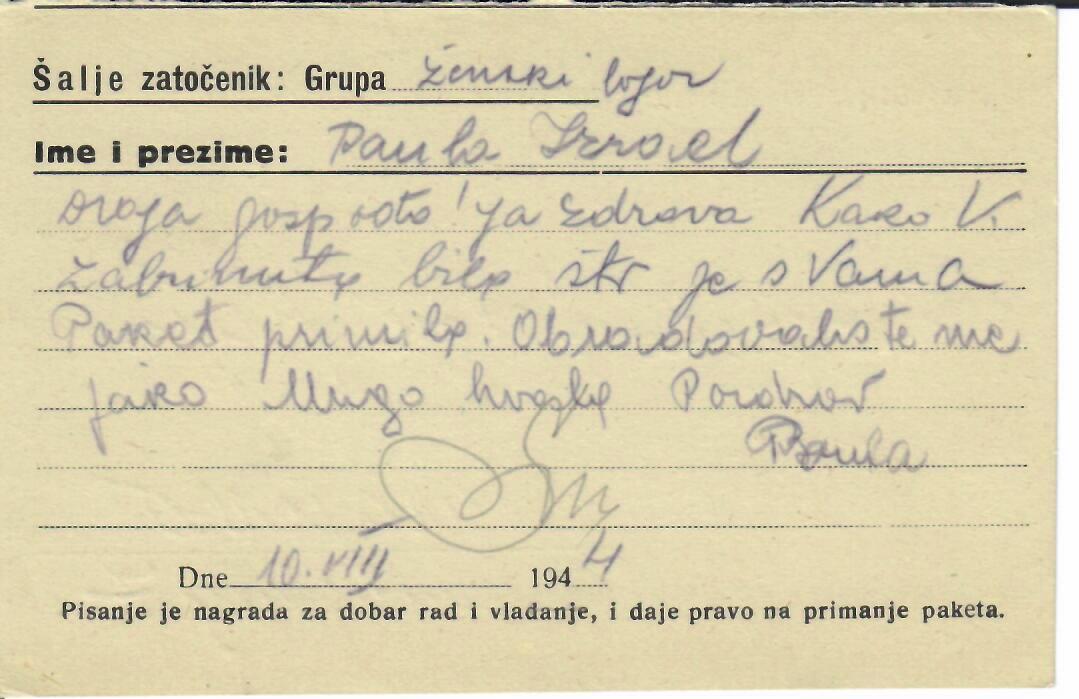 Šalje zatočenik: Grupa ženski logor
Ime i prezime: Paula Izrael
Draga gospođo! Ja zdrava Kako Vi
Zabrinuta bila što je s Vama
Paket primila. Obradovali ste me
jako Mnogo hvala Pozdrav
Paula
Dne 10. VIII 1944
Pisanje je nagrada za dobar rad i vladanje, i daje pravo na primanje paketa.